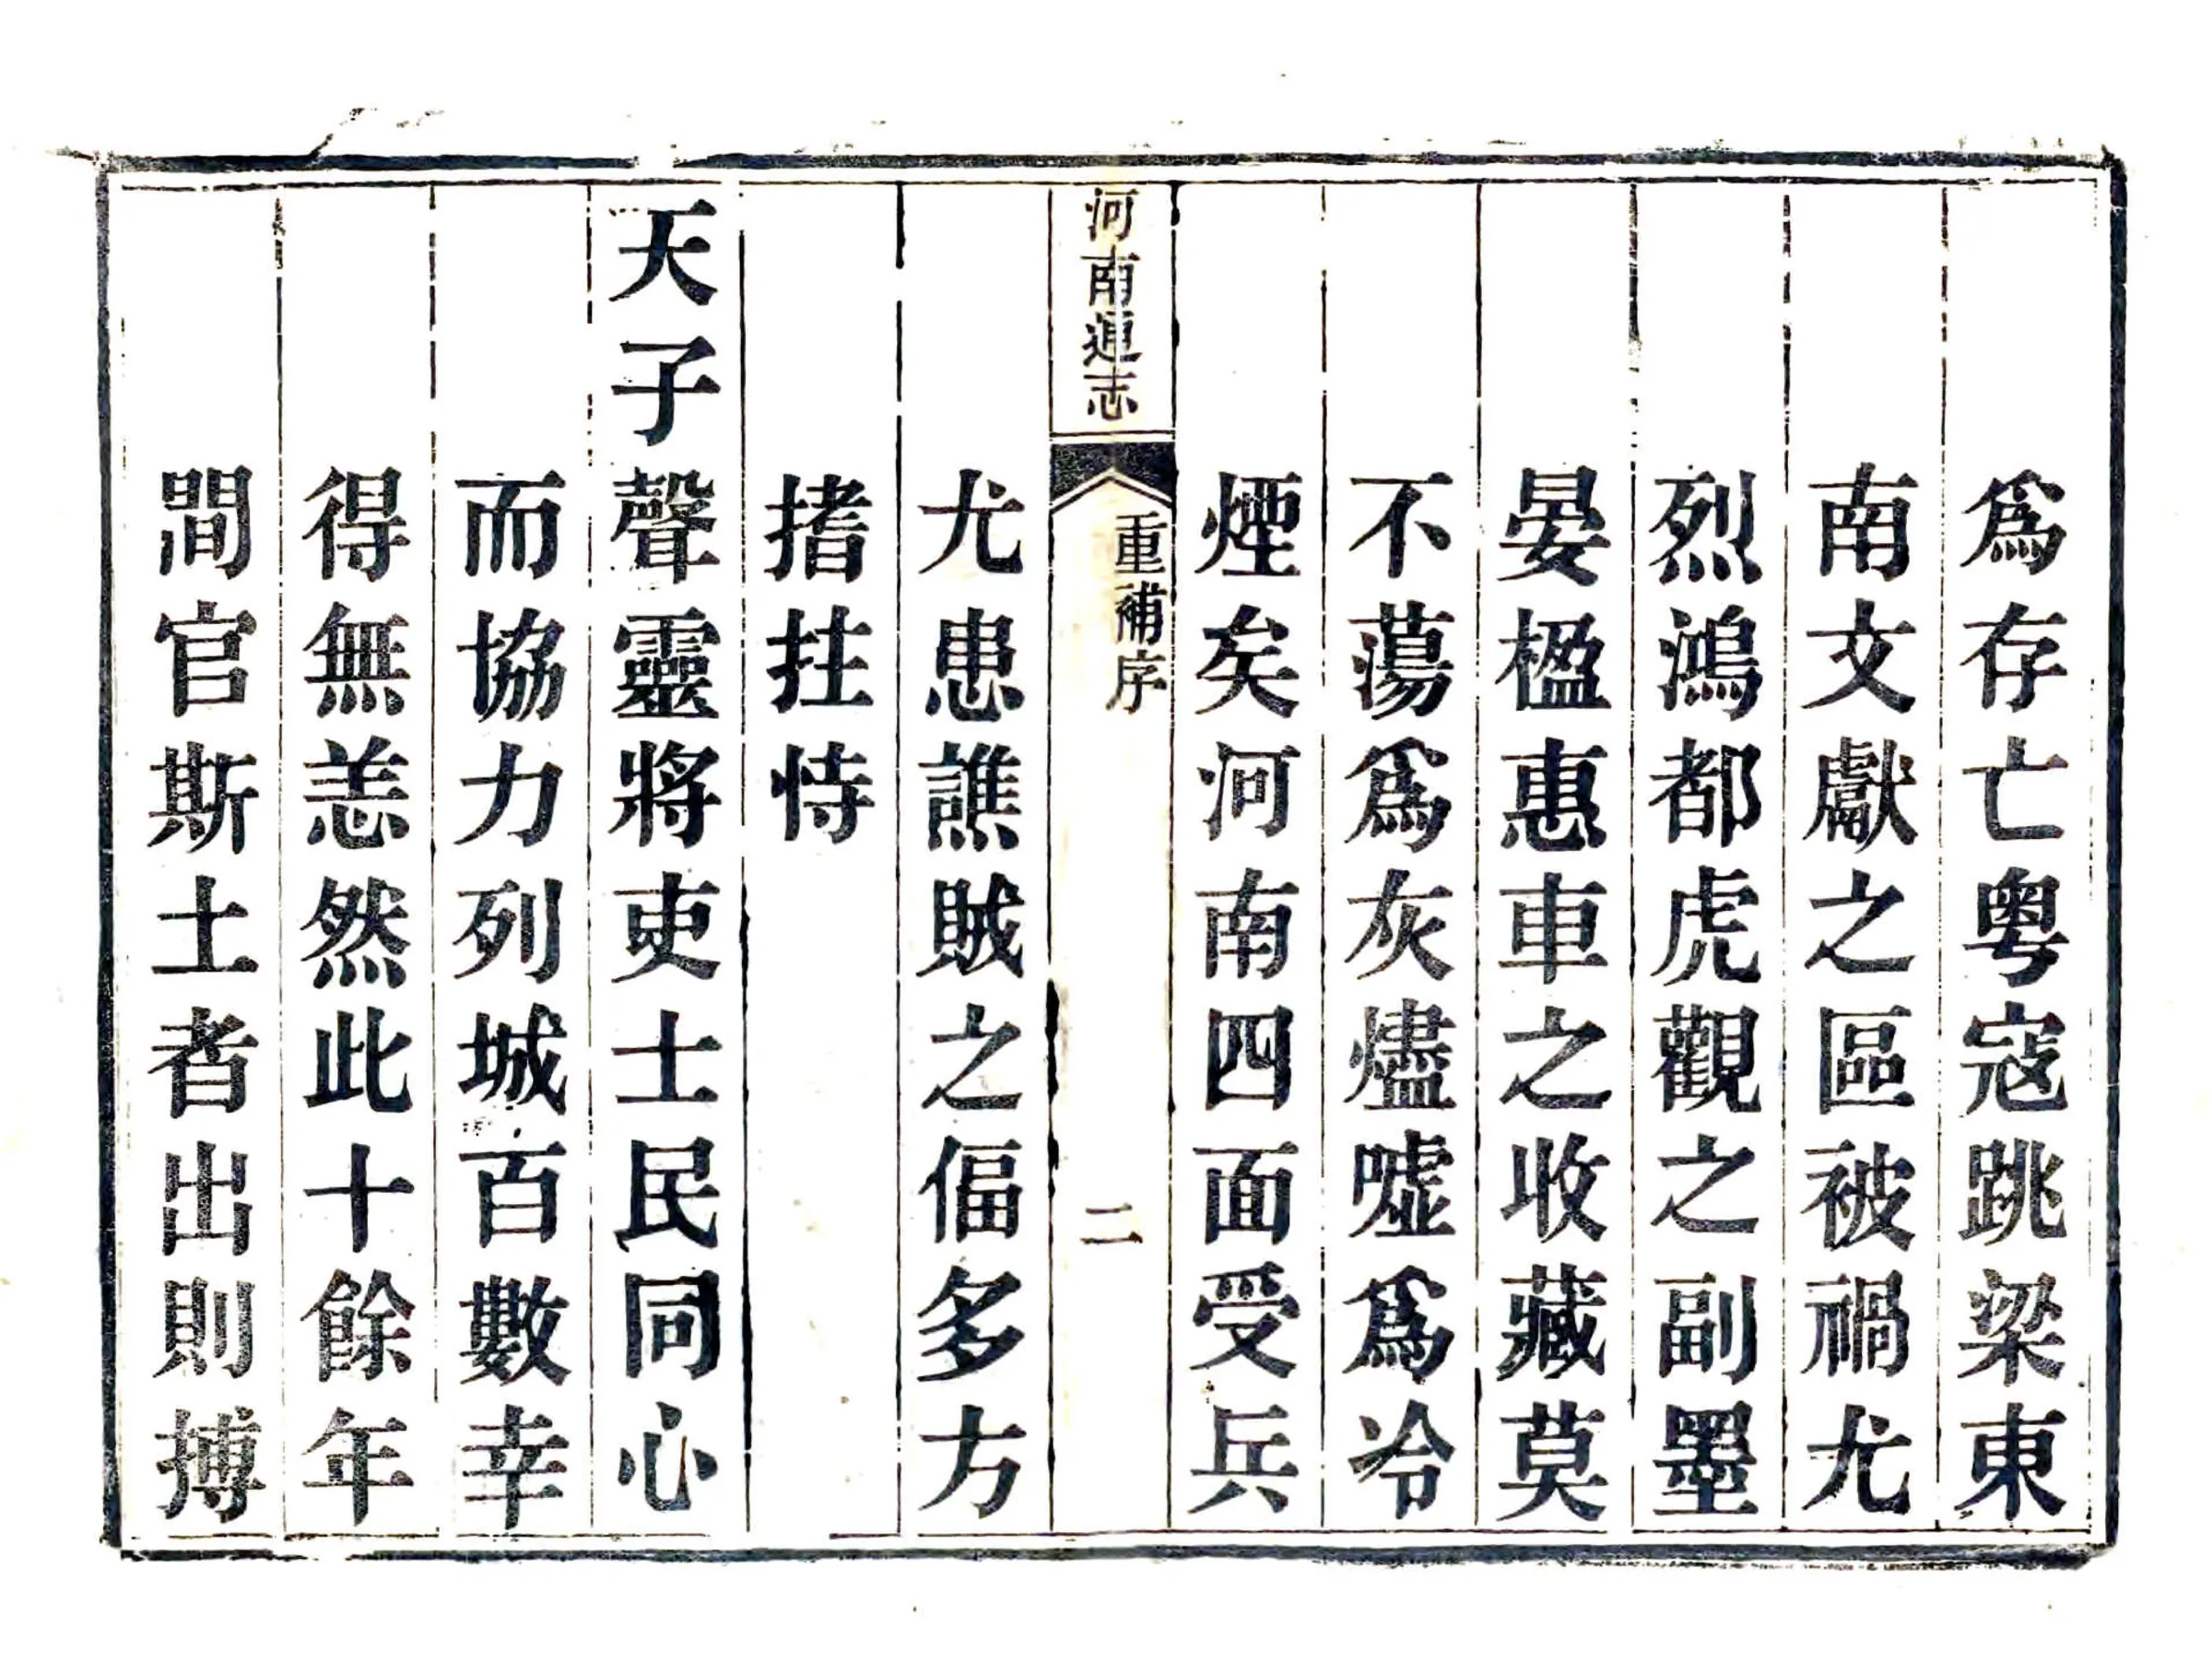 爲存亡粤寇跳梁東
南文獻之區被禍尤
烈鴻都虎觀之副墨
晏楹惠車之收藏莫
不蕩爲灰燼噓爲冷
煙矣河南四面受兵
河南通志
重補序
二
尤患譙賊之偪多方
搘拄恃
天子聲靈將吏士民同心
而協力列城百數幸
得無恙然此十餘年
間官斯土者出則搏